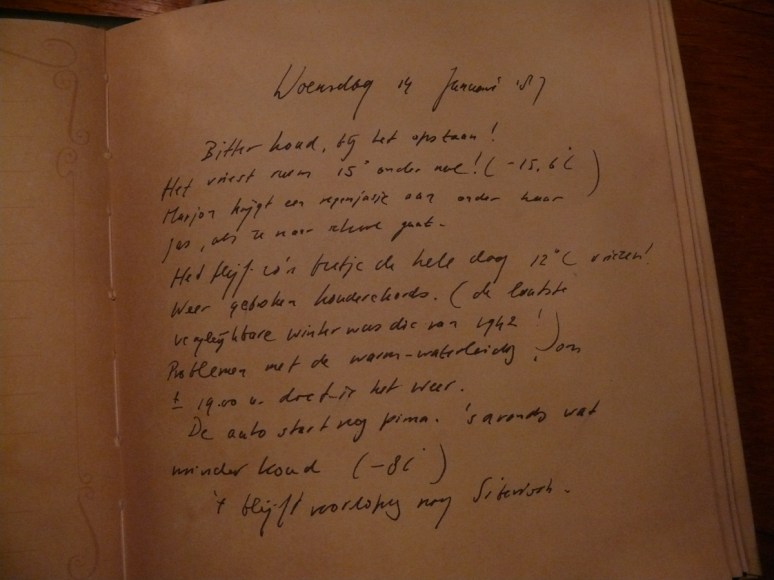 Woensdag 14 Januari '87
Bitter koud, bij het opstaan!
Het vriest ruim 15° onder nul! (-15,6 C)
Marjon krijgt een regenjasje aan onder haar
jas, als ze naar school gaat.
Het blijft zo'n beetje de hele dag 12°C vriezen!
Weer gebroken kouderecords. (de laatste
vergelijkbare winter was die van 1942!)
Problemen met de warm-waterleiding, om
± 19.00 u. doet-ie het weer.
De auto start nog prima. 's avonds wat
minder koud (-8C)
't blijft voorlopig nog Siberisch.